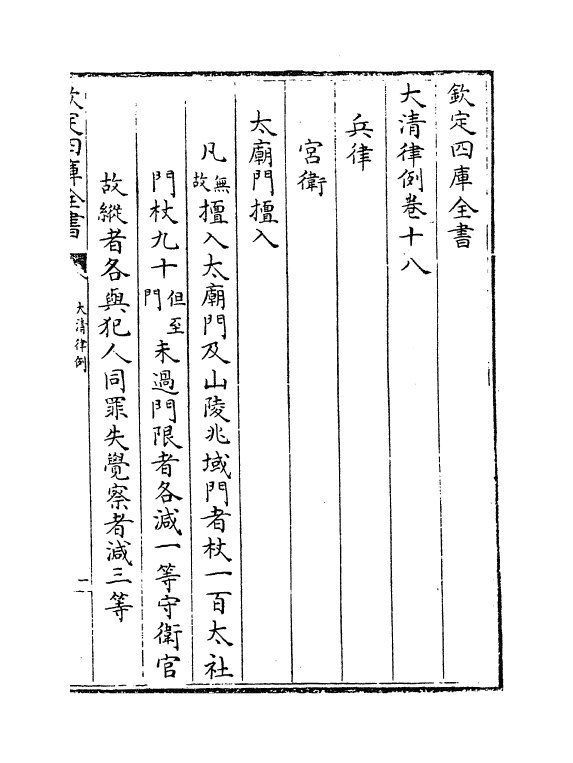 欽定四庫全書
大清律例卷十八
兵律
宮衛
太廟門擅入
凡無故擅入太廟門及山陵兆域門者杖一百太社
門杖九十但至門未過門限者各減一等守衛官
故縱者各與犯人同罪失覺察者減三等
欽定四庫全書
大清律例
一